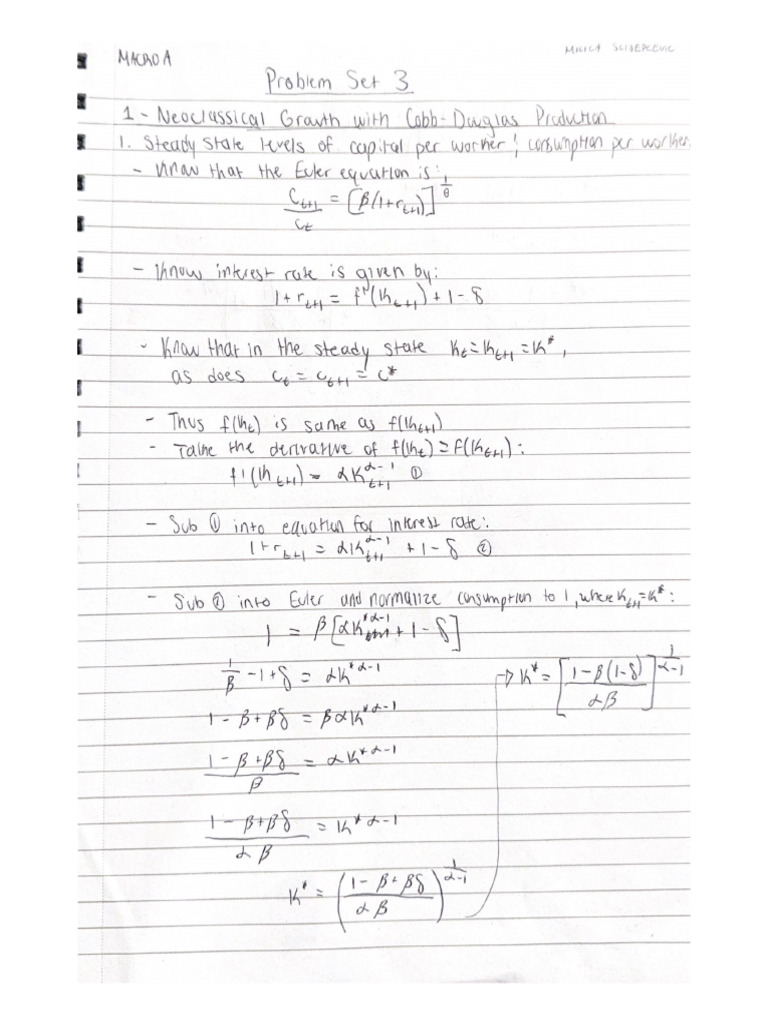 MACRO A
Problem Set 3
1 - Neoclassical Growth with Cobb-Douglas Production
1. Steady state levels of capital per worker ; consumption per worker.
- Know that the Euler equation is:
C_{t+1}/C_t = [β(1+r_{t+1})]^{1/θ}
- Know interest rate is given by:
1+r_{t+1} = f'(K_{t+1}) + 1 - δ
- Know that in the steady state K_t = K_{t+1} = K*,
as does C_t = C_{t+1} = C*
- Thus f(K_t) is same as f(K_{t+1})
- Take the derivative of f(K_t) = f(K_{t+1}):
f'(K_{t+1}) = αK_{t+1}^{α-1} ①
- Sub ① into equation for interest rate:
1+r_{t+1} = αK_{t+1}^{α-1} + 1 - δ ②
- Sub ② into Euler and normalize consumption to 1, where K_{t+1} = K*:
1 = β[αK*^{α-1} + 1 - δ]
1/β - 1 + δ = αK*^{α-1}
→ K* = [(1-β(1-δ))/(αβ)]^{1/(α-1)}
1 - β + βδ = βαK*^{α-1}
(1 - β + βδ)/β = αK*^{α-1}
(1 - β + βδ)/(αβ) = K*^{α-1}
K* = ((1 - β + βδ)/(αβ))^{1/(α-1)}